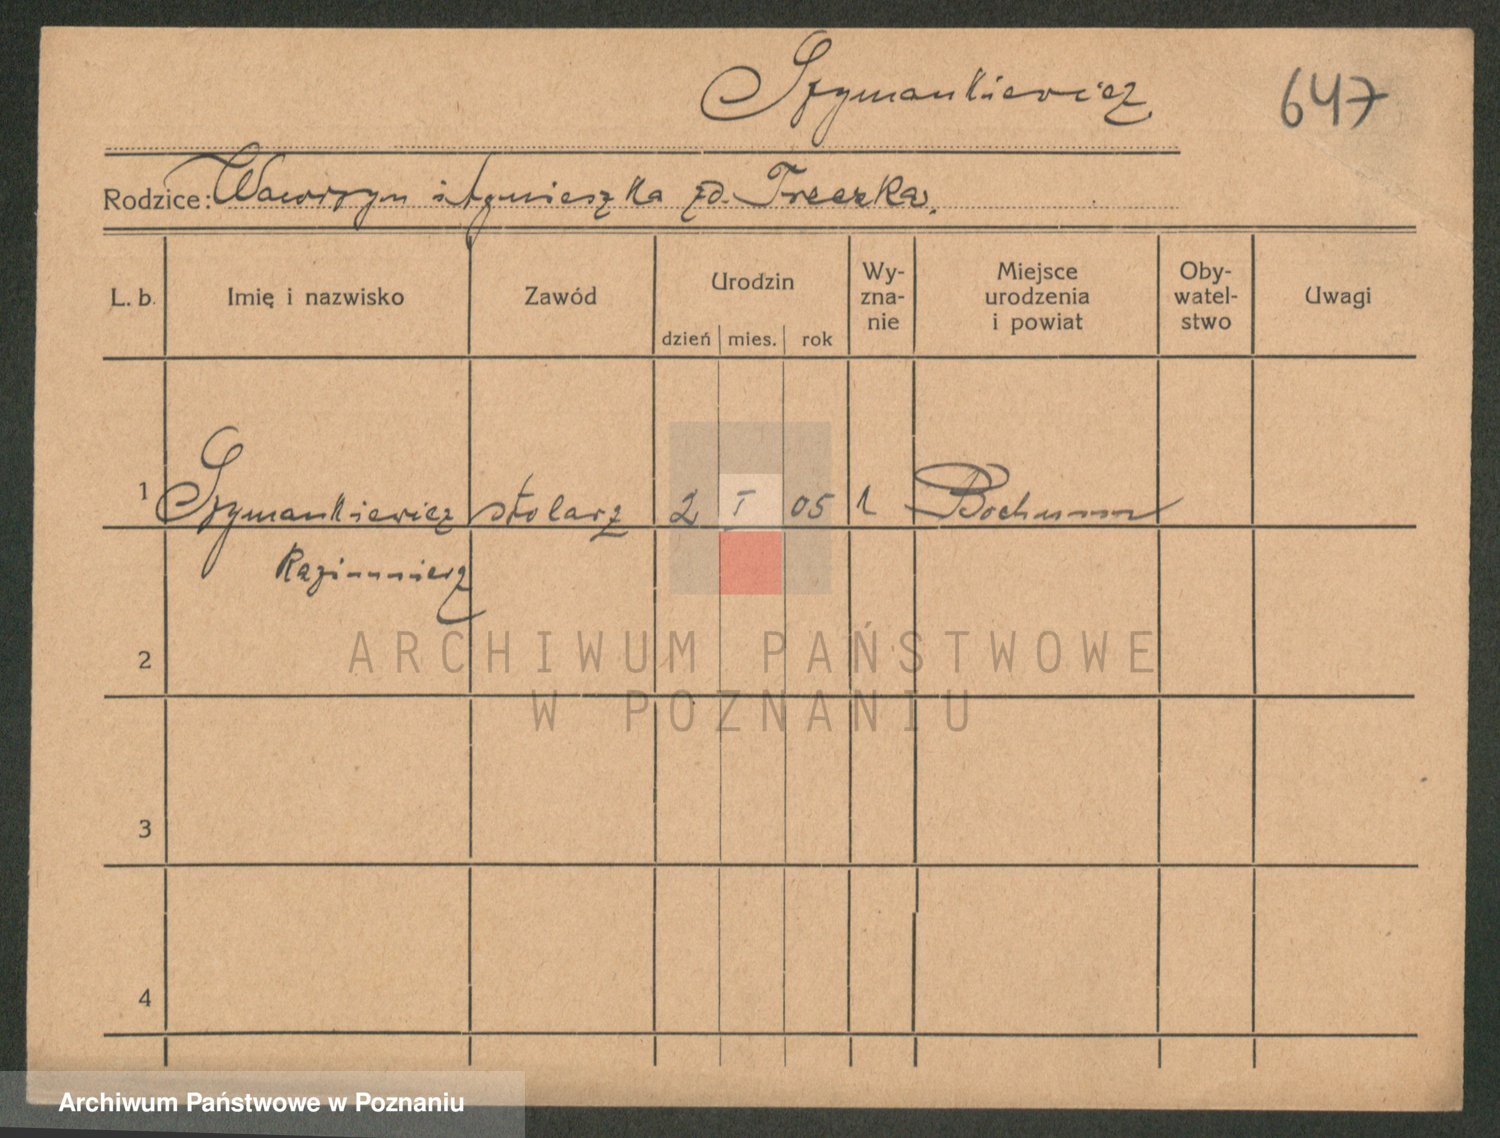 Szymankiewicz
647
Rodzice: Wawrzyn i Agnieszka zd. Treczka.
L. b. Imię i nazwisko Zawód Urodzin dzień mies. rok Wy-zna-nie Miejsce urodzenia i powiat Oby-watel-stwo Uwagi
1 Szymankiewicz stolarz 2 I 05 Bochum
Kazimierz
2
3
4
ARCHIWUM PAŃSTWOWE
W POZNANIU
Archiwum Państwowe w Poznaniu